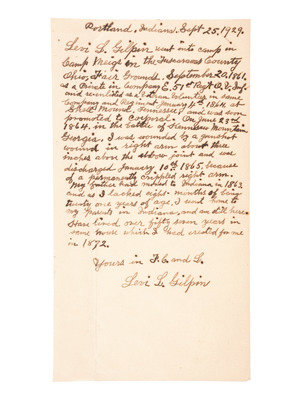 Portland, Indiana. Sept 25, 1929.
Levi L. Gilpin went into camp in
Camp Meigs on the Tuscarawas County
Ohio, Fair Grounds. September 20, 1861.
as a Private in Company E. 51st Regt O.V. Inf.
and reenlisted as a Vet. Volunteer in same
Company and Regiment January 4th 1864 at
Shell Mound, Tennessee, and was soon
promoted to Corporal. On June
1864. in the battle of Kennesaw Mountain
Georgia. I was wounded by a gunshot
wound in right arm about three
inches above the elbow joint and was
discharged January 10th 1865, because
of a permanently crippled right arm.
My father had moved to Indiana in 1863
and as I lacked eight months of being
twenty one years of age, I went home to
my parents in Indiana, and am still here.
Have lived over fifty seven years in
same house which I had erected for me
in 1872.
Yours in F. C. and L.
Levi L. Gilpin